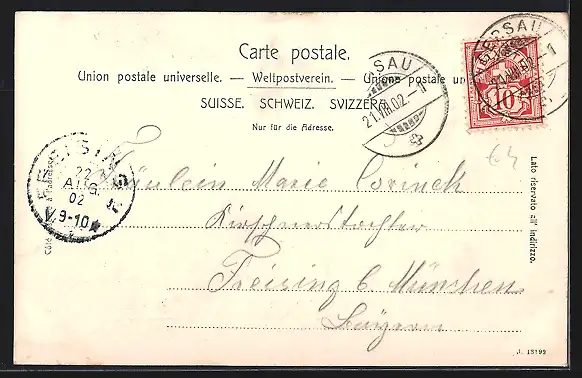 Carte postale.
Union postale universelle. — Weltpostverein. — Unione postale un
SUISSE. SCHWEIZ. SVIZZERA
Nur für die Adresse.
GERSAU
21.VIII.02.-1
10
SAU
21.VIII.02.-1
64
FREISING
22
AUG.
02
V.9-10
Fräulein Marie
Freising b. München
Bayern
Lato riservato all' indirizzo.
Côté
J. 13192